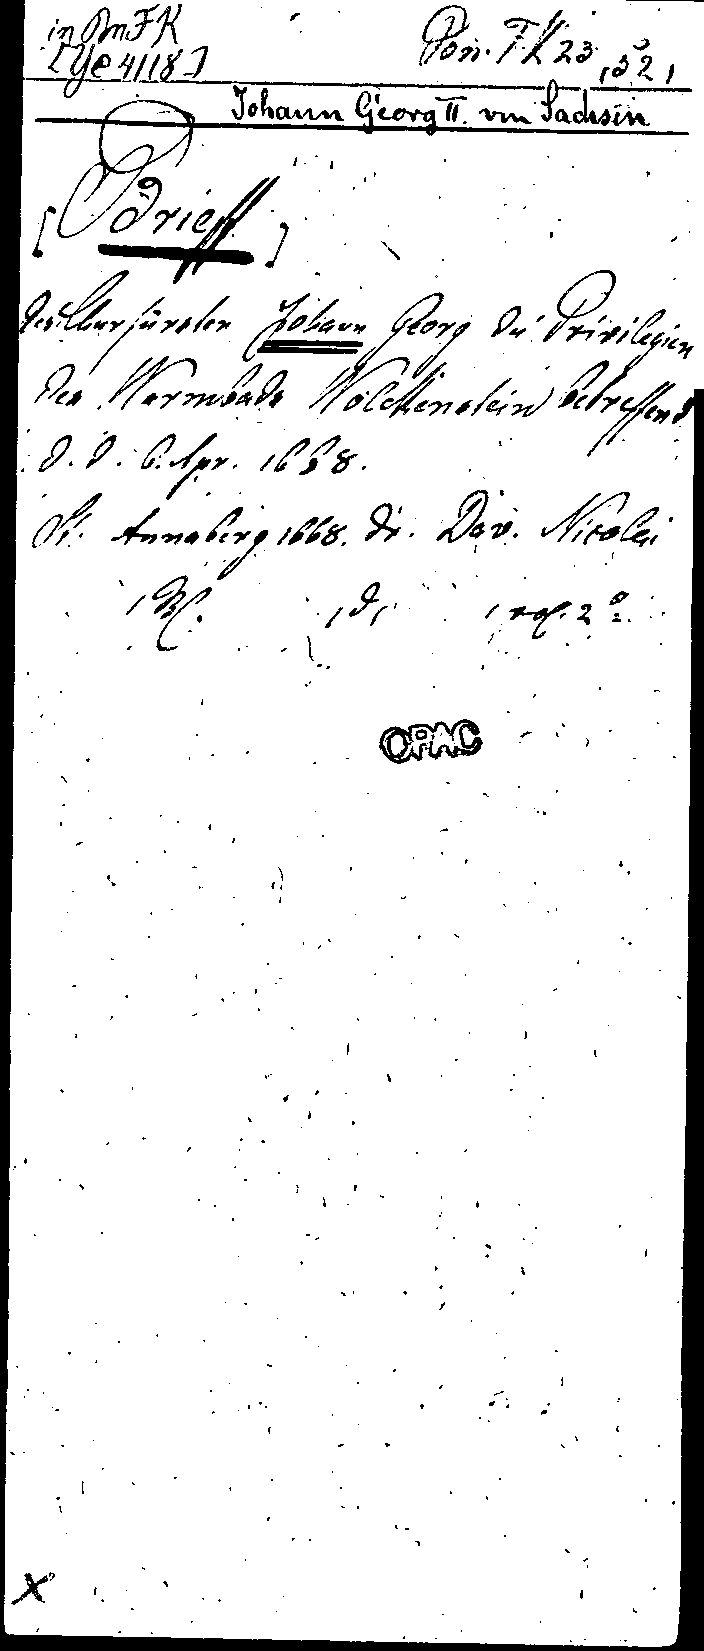 in Pon FK
[Ye 4118]
Pon. FK 23, 52,
Johann Georg II. von Sachsen
[Brieff]
des Churfürsten Johann Georg die Privilegien
des Warmbads Wolckenstein betreffend
d. d. 6. Apr. 1668.
St. Annaberg 1668. dr. Dav. Nicolai
2°
OPAC
x